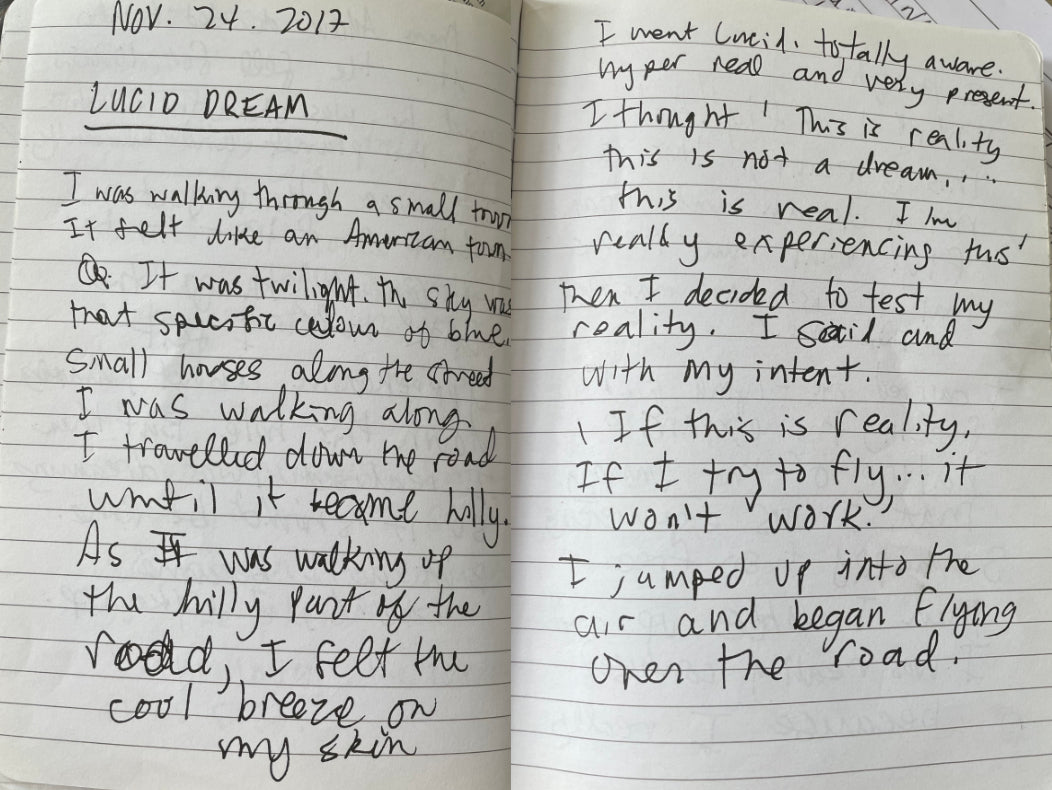 NOV. 24. 2017
LUCID DREAM
I was walking through a small town
It felt like an American town
It was twilight. The sky was
that specific colour of blue.
Small houses along the street
I was walking along.
I travelled down the road
until it became hilly.
As I was walking up
the hilly part of the
road, I felt the
cool breeze on
my skin
I went lucid. totally aware.
Hyper real and very present.
I thought ' This is reality
this is not a dream...
this is real. I'm
really experiencing this'
Then I decided to test my
reality. I said and
with my intent.
' If this is reality,
If I try to fly... it
won't work.'
I jumped up into the
air and began flying
over the road.